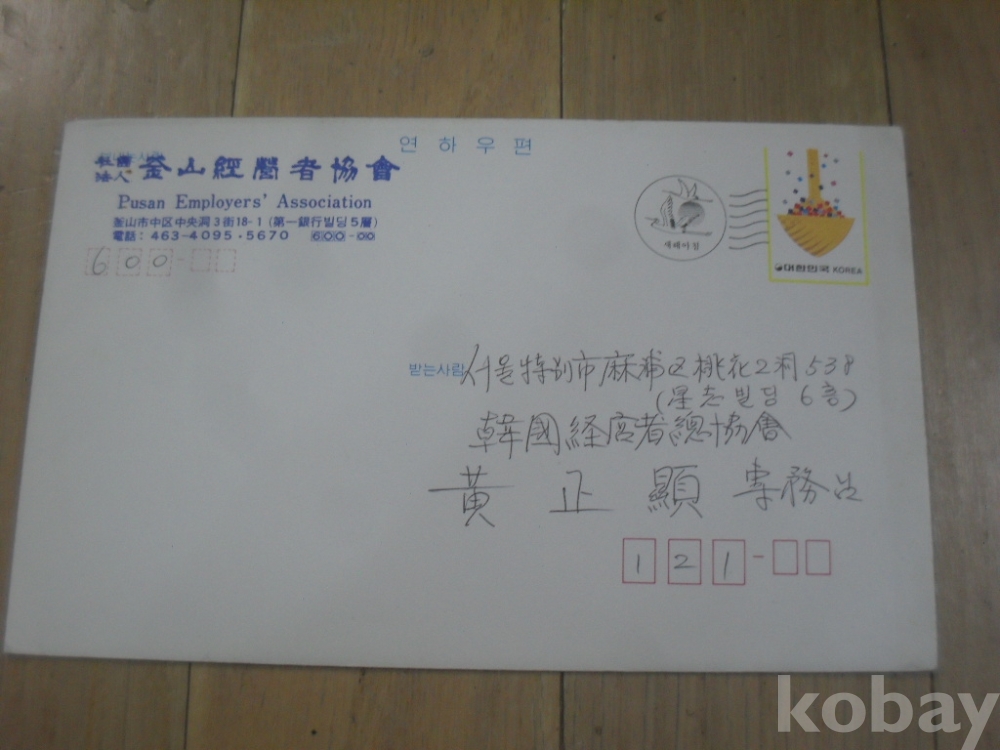 연하우편
社團法人 釜山經營者協會
Pusan Employers' Association
釜山市中区中央洞3街18-1 (第一銀行빌딩5層)
電話: 463-4095·5670 600-00
600-
새해아침
대한민국 KOREA
받는사람 서울特別市麻浦区桃花2洞 538
(星志빌딩 6층)
韓國経営者總協會
黃正顯 専務님
121-
kobay